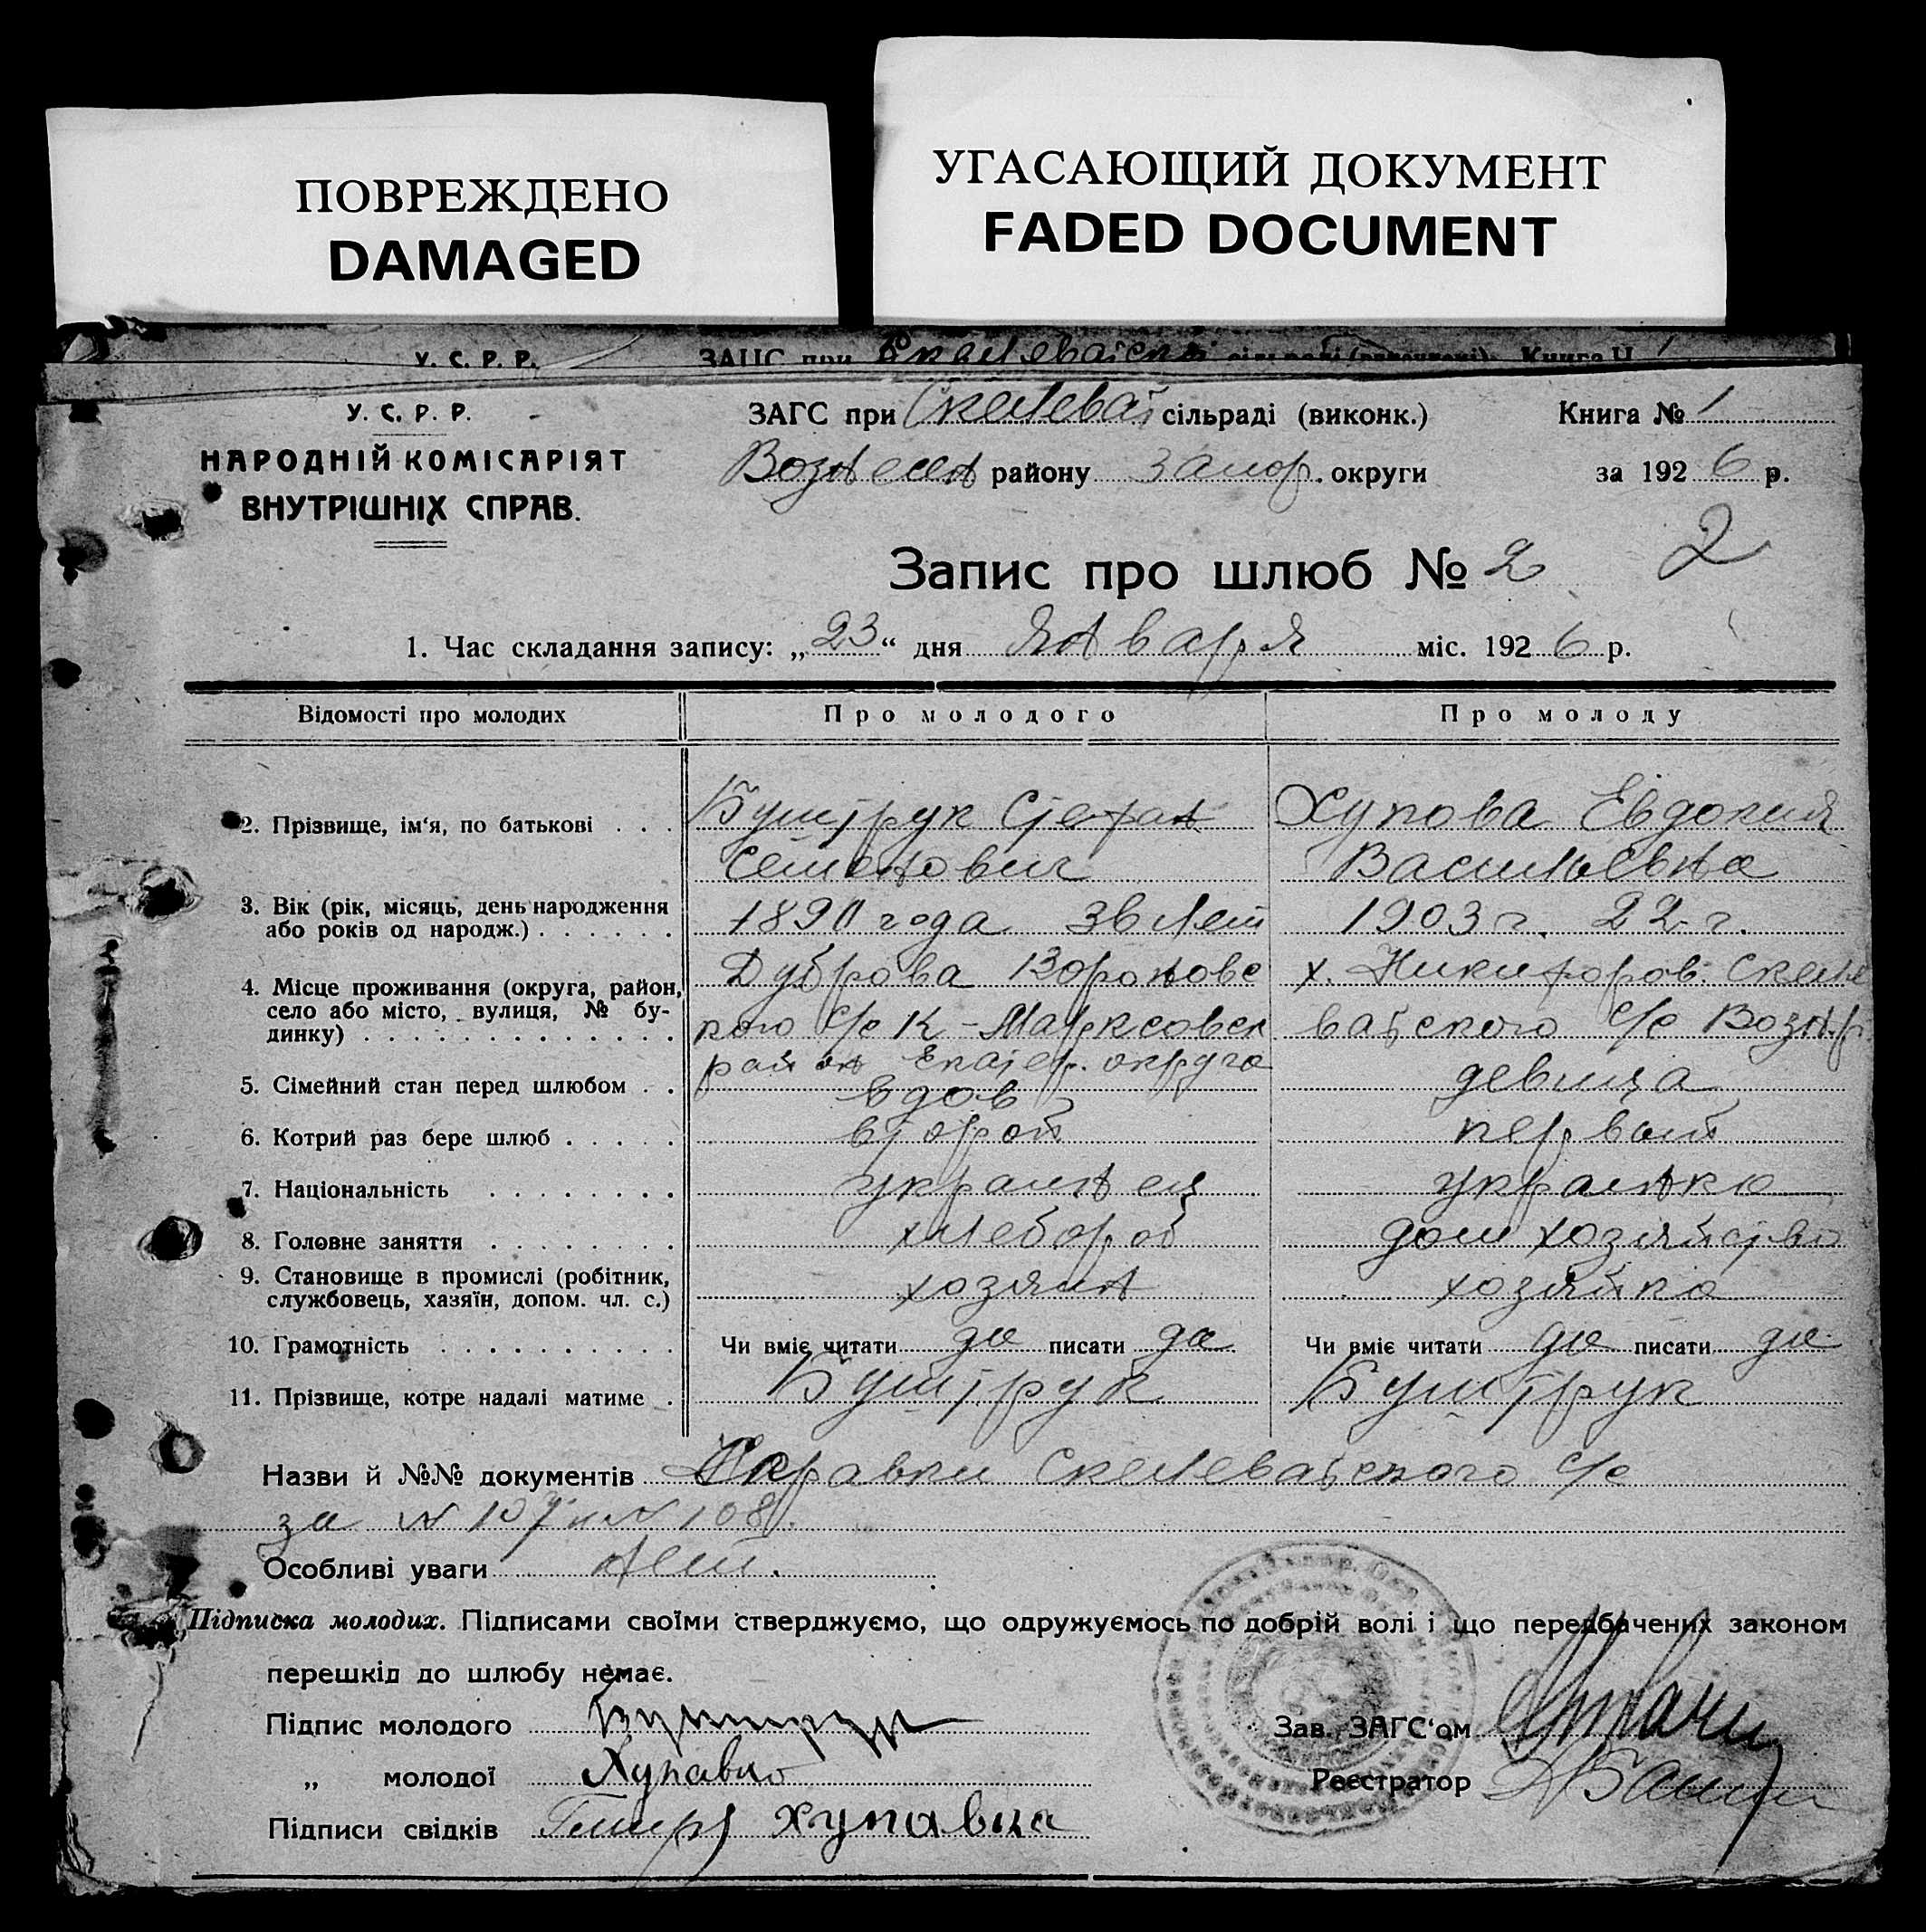 ПОВРЕЖДЕНО
DAMAGED
УГАСАЮЩИЙ ДОКУМЕНТ
FADED DOCUMENT
У. С. Р. Р. ЗАГС при
У. С. Р. Р.
НАРОДНІЙ КОМІСАРІЯТ
ВНУТРІШНІХ СПРАВ.
ЗАГС при Скелеват сільраді (виконк.) Книга № 1
Вознесен району Запор. округи за 1926 р.
Запис про шлюб № 2 2
1. Час складання запису: „23“ дня Января міс. 1926 р.
Відомості про молодих Про молодого Про молоду
2. Прізвище, ім'я, по батькові . . . Бунтрук Стефан Хупова Евдокия
Семенович Васильевна
3. Вік (рік, місяць, день народження 1890 года 36 лет 1903 г. 22 г.
або років од народж.) . . . . . .
4. Місце проживання (округа, район, Дуброва Вороновс х. Никифоров. Скеле
село або місто, вулиця, № бу- кого с/с К-Марксовск ватского с/с Возн.р
динку) . . . . . . . . . . . . . район Екатер. округа
5. Сімейний стан перед шлюбом . . вдов девица
6. Котрий раз бере шлюб . . . . . второй первый
7. Національність . . . . . . . . украинец украинка
8. Головне заняття . . . . . . . . хлебороб дом хозяйство
9. Становище в промислі (робітник, хозяин хозяйка
службовець, хазяїн, допом. чл. с.)
10. Грамотність . . . . . . . . . . Чи вміє читати да писати да Чи вміє читати да писати да
11. Прізвище, котре надалі матиме . Бунтрук Бунтрук
Назви й №№ документів Справки Скелеватского с/с
за № 107 и № 108.
Особливі уваги нет.
Підписка молодих. Підписами своїми стверджуємо, що одружуємось по добрій волі і що передбачених законом
перешкід до шлюбу немає.
Підпис молодого Бунтрук
Зав. ЗАГС'ом
„ молодої
Реєстратор
Підписи свідків